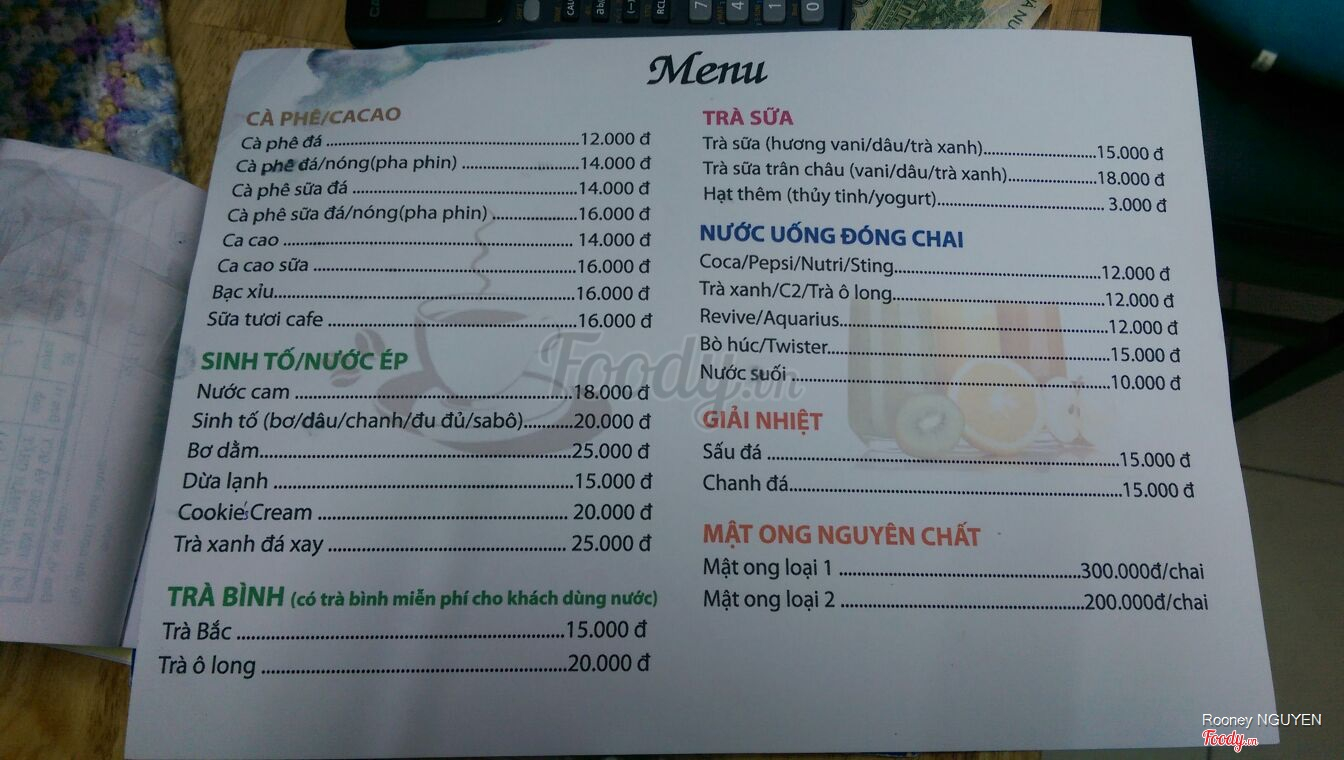 Menu
CÀ PHÊ/CACAO
Cà phê đá ........ 12.000 đ
Cà phê đá/nóng(pha phin) ........ 14.000 đ
Cà phê sữa đá ........ 14.000 đ
Cà phê sữa đá/nóng(pha phin) ........ 16.000 đ
Ca cao ........ 14.000 đ
Ca cao sữa ........ 16.000 đ
Bạc xỉu ........ 16.000 đ
Sữa tươi cafe ........ 16.000 đ
SINH TỐ/NƯỚC ÉP
Nước cam ........ 18.000 đ
Sinh tố (bơ/dâu/chanh/đu đủ/sabô) ........ 20.000 đ
Bơ dằm ........ 25.000 đ
Dừa lạnh ........ 15.000 đ
Cookie's Cream ........ 20.000 đ
Trà xanh đá xay ........ 25.000 đ
TRÀ BÌNH (có trà bình miễn phí cho khách dùng nước)
Trà Bắc ........ 15.000 đ
Trà ô long ........ 20.000 đ
TRÀ SỮA
Trà sữa (hương vani/dâu/trà xanh) ........ 15.000 đ
Trà sữa trân châu (vani/dâu/trà xanh) ........ 18.000 đ
Hạt thêm (thủy tinh/yogurt) ........ 3.000 đ
NƯỚC UỐNG ĐÓNG CHAI
Coca/Pepsi/Nutri/Sting ........ 12.000 đ
Trà xanh/C2/Trà ô long ........ 12.000 đ
Revive/Aquarius ........ 12.000 đ
Bò húc/Twister ........ 15.000 đ
Nước suối ........ 10.000 đ
GIẢI NHIỆT
Sấu đá ........ 15.000 đ
Chanh đá ........ 15.000 đ
MẬT ONG NGUYÊN CHẤT
Mật ong loại 1 ........ 300.000đ/chai
Mật ong loại 2 ........ 200.000đ/chai
Foody.vn
Rooney NGUYEN
Foody.vn